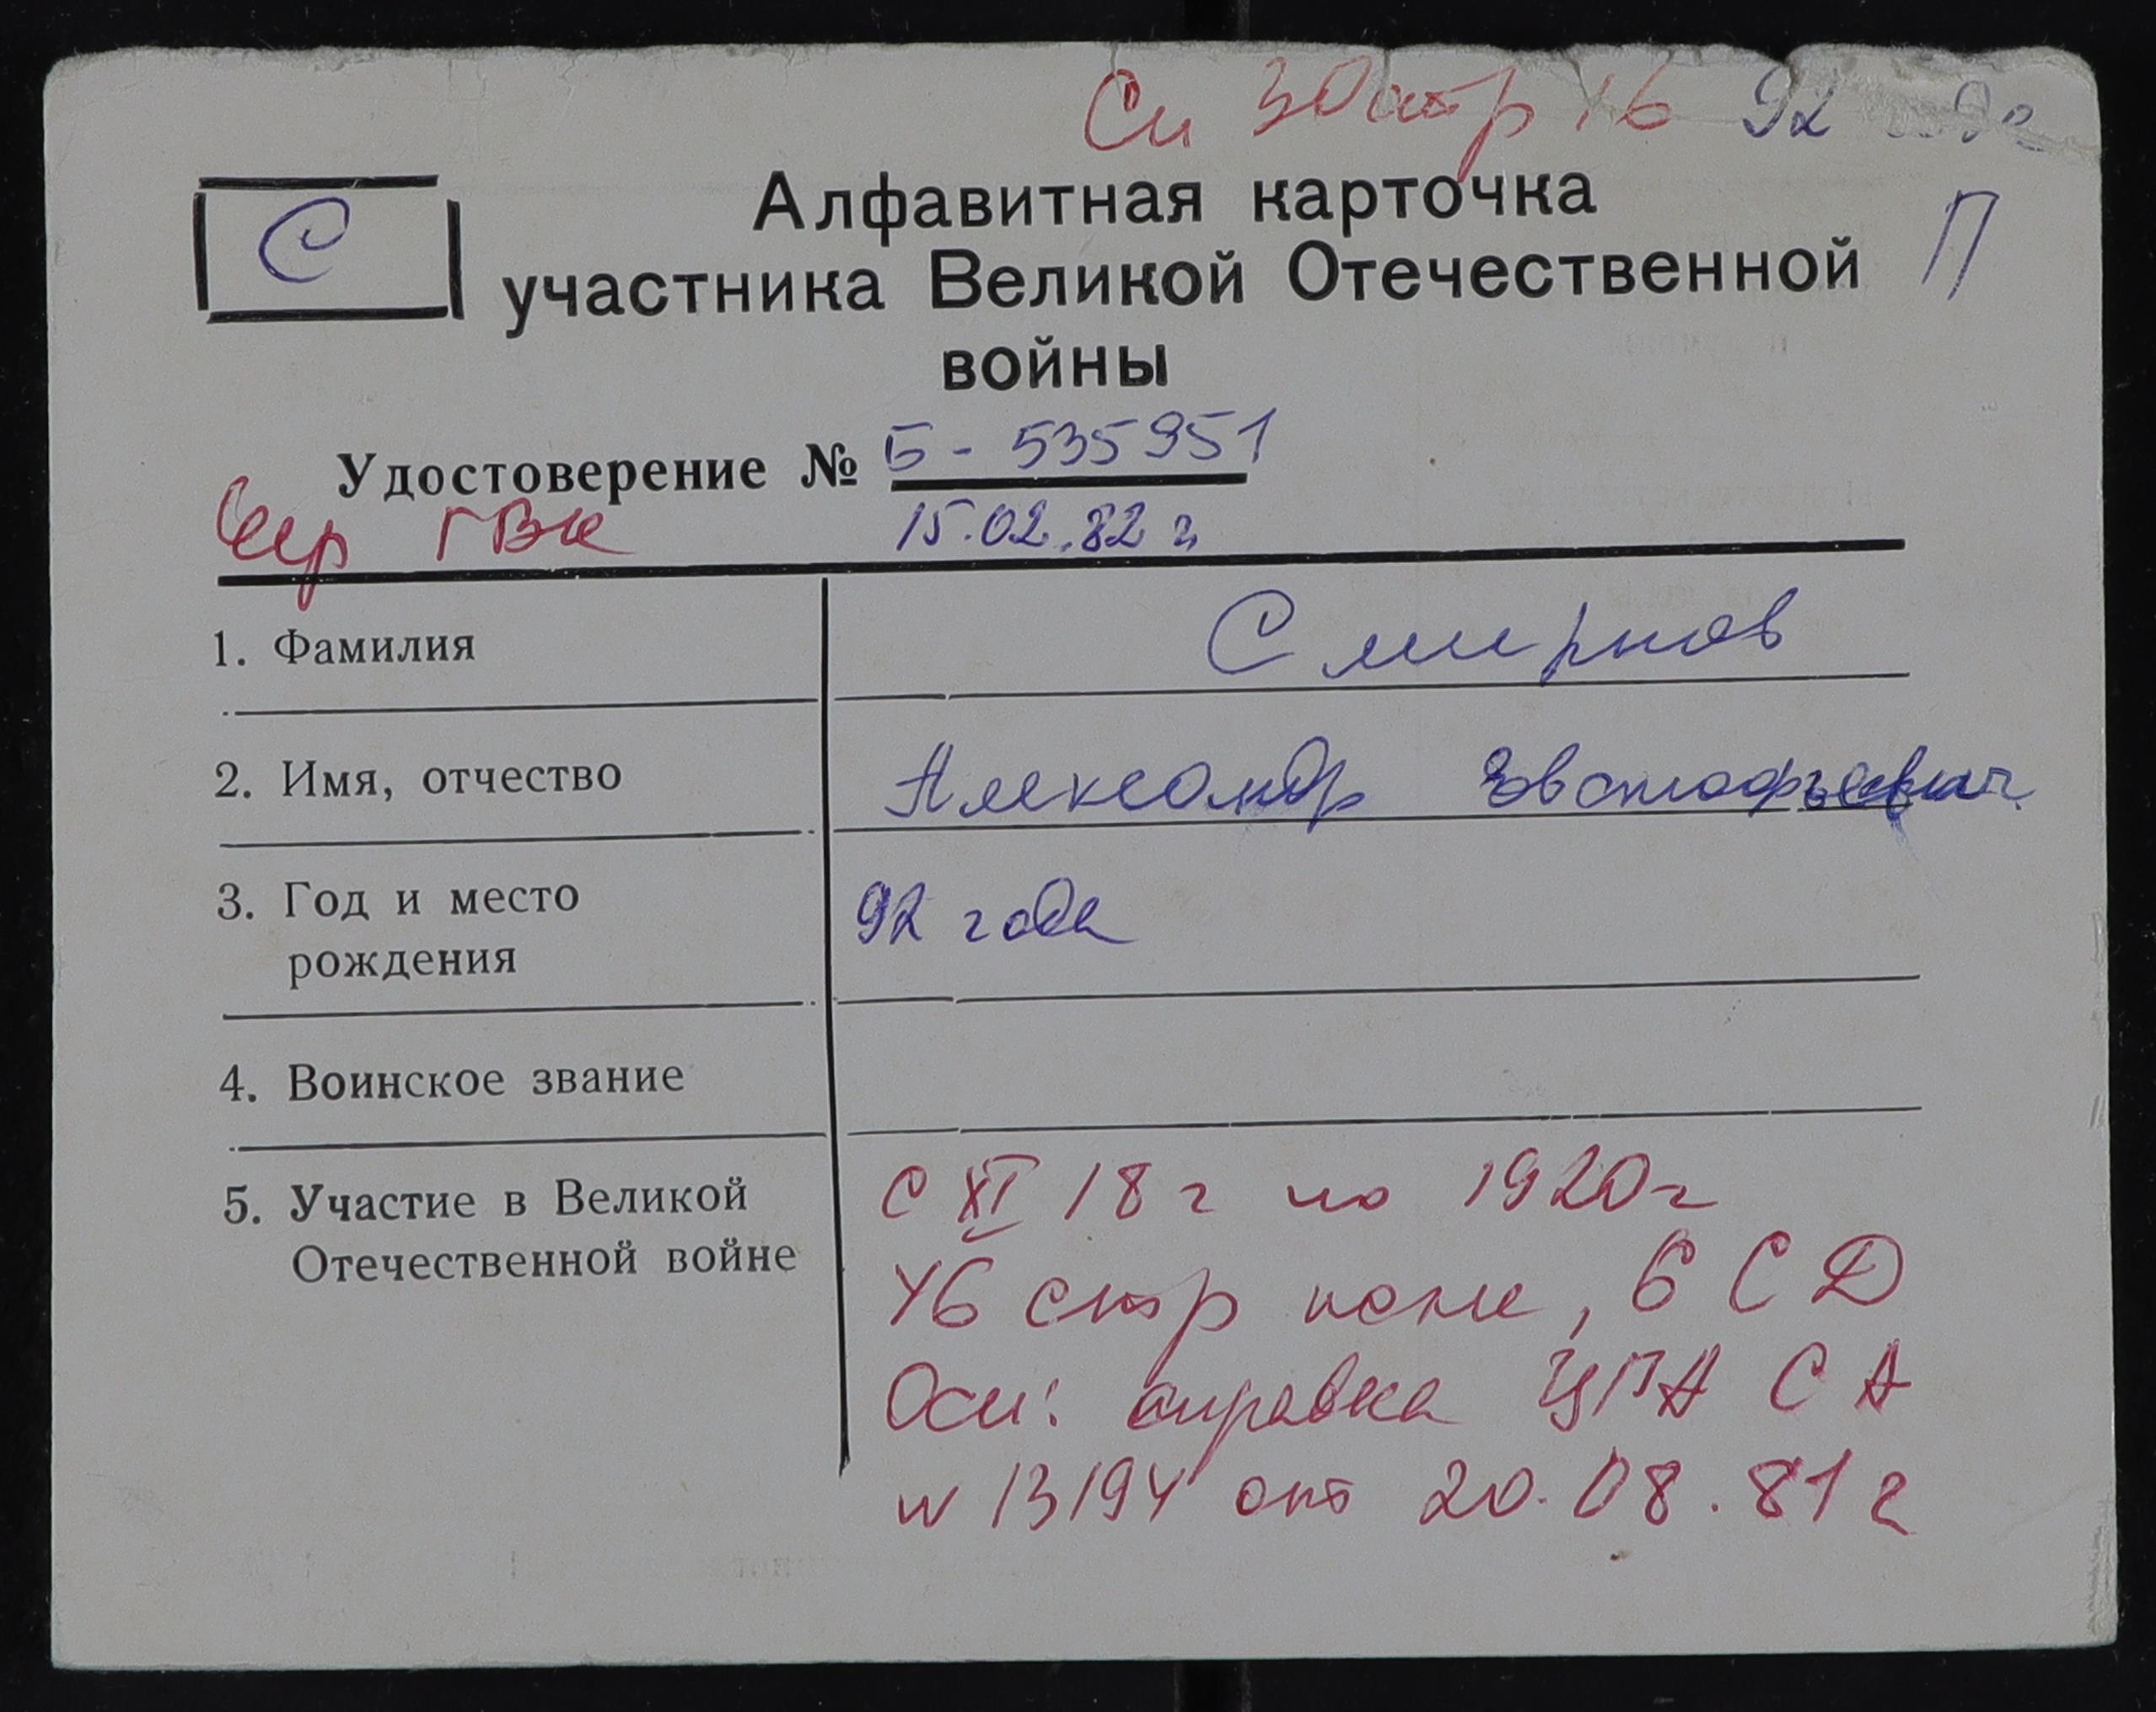 Сп 30 стр 16 92
С
Алфавитная карточка
участника Великой Отечественной
войны
П
Удостоверение № Б - 535951
Сер ГВК 15.02.82 г
1. Фамилия Смирнов
2. Имя, отчество Александр Евстафьевич
3. Год и место 92 года
рождения
4. Воинское звание
5. Участие в Великой С XI 18 г по 1920 г
Отечественной войне 46 стр полк, 6 СД
Осн: справка ЦГА СА
N 13194 от 20.08.81 г